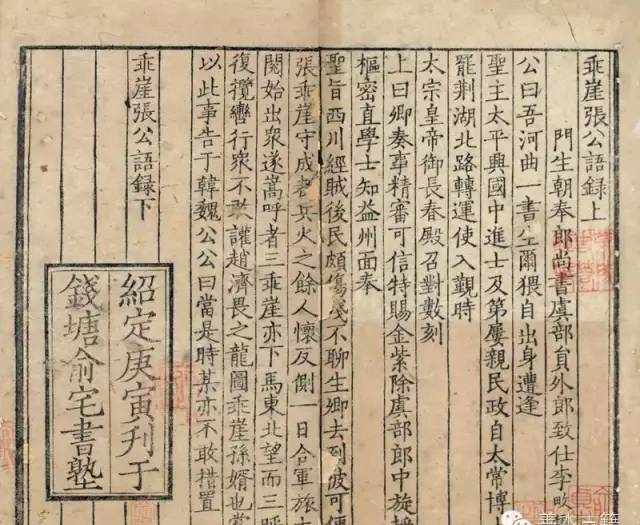 乖崖張公語録上
門生朝奉郎尚書虞部員外郎致仕李畋
公曰吾河曲一書生爾猥自出身遭逢
聖主太平興國中進士及第屢親民政自太常博
罷荆湖北路轉運使入覲時
太宗皇帝御長春殿召對數刻
上曰卿奏事精審可信特賜金紫除虞部郎中旋
樞密直學士知益州面奉
聖旨西川經賊後民頗傷殘不聊生卿去到彼可便
張乖崖守成都兵火之餘人懷反側一日合軍旅大
閱始出衆遂嵩呼者三乖崖亦下馬東北望而三呼
復攬轡行衆不敢讙趙濟畏之龍圖乖崖孫婿也嘗
以此事告于韓魏公公曰當是時某亦不敢措置
乖崖張公語録下
紹定庚寅刋于
錢塘俞宅書塾